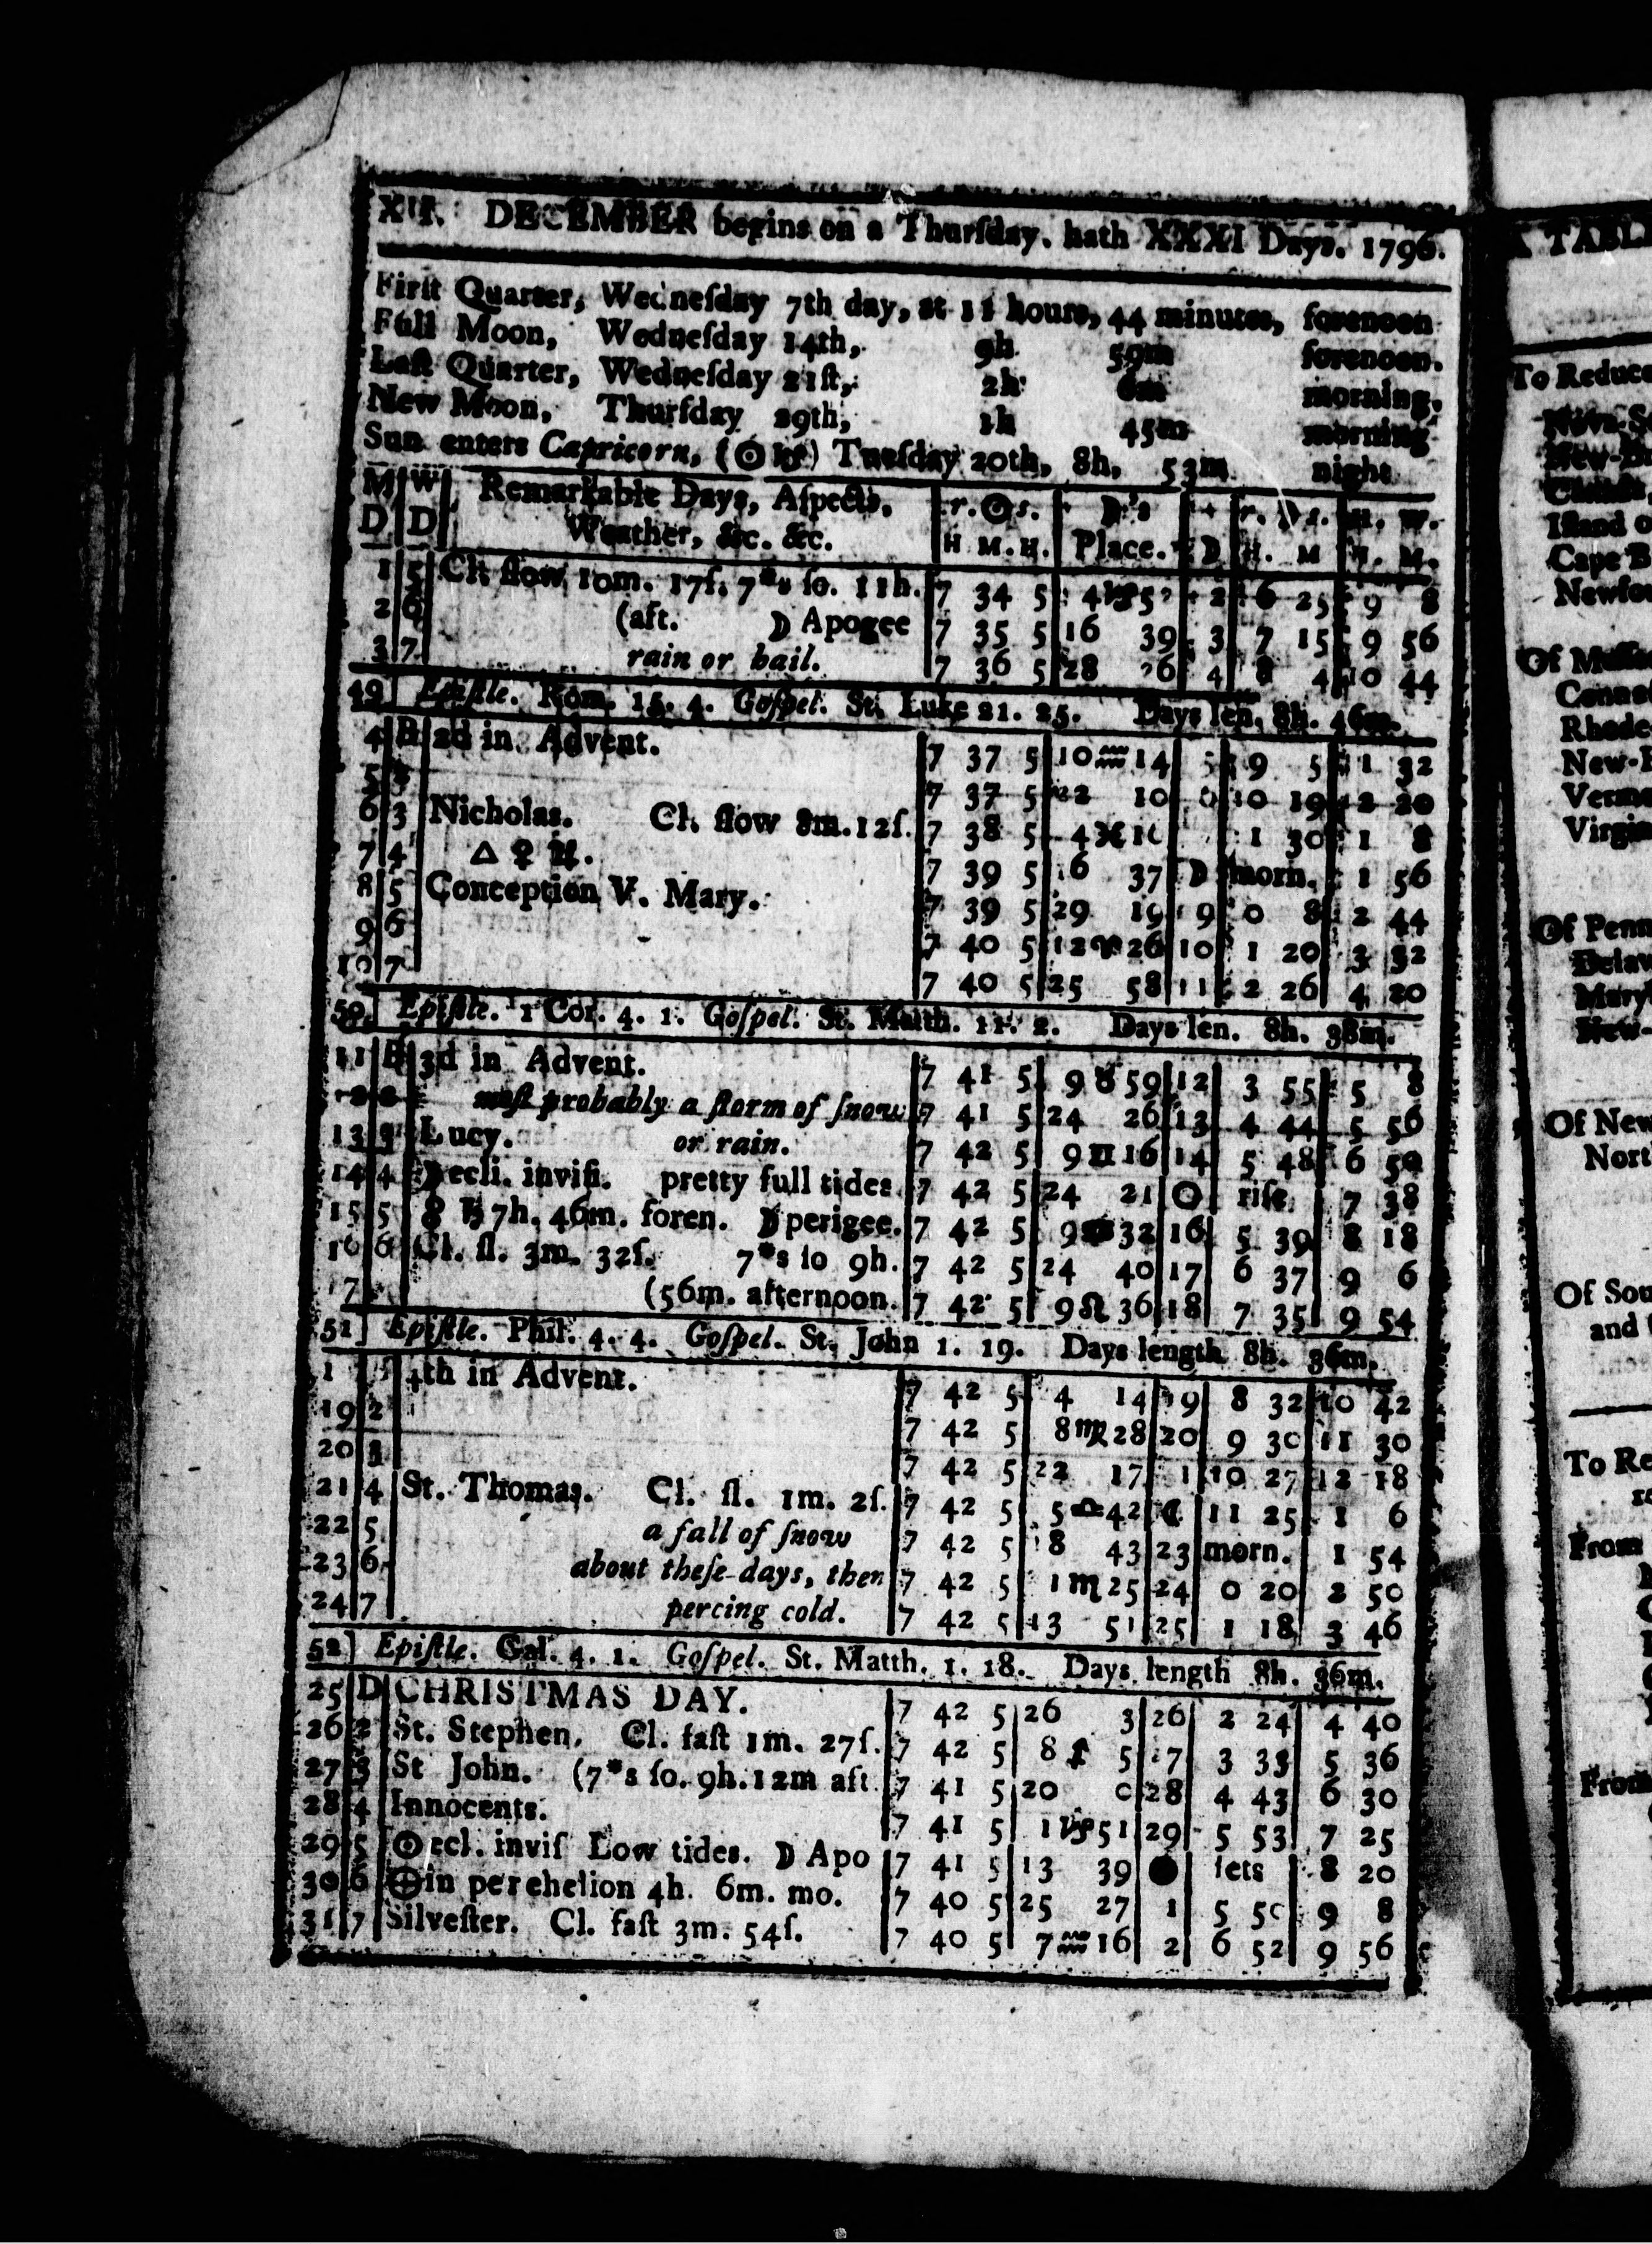 XII. DECEMBER begins on a Thurſday. hath XXXI Days. 1796.
Firſt Quarter, Wedneſday 7th day, at 11 hours, 44 minutes, forenoon
Full Moon, Wedneſday 14th, 9h 59m forenoon.
Laſt Quarter, Wedneſday 21ſt, 2h 6m morning.
New Moon, Thurſday 29th, 1h 45m morning
Sun enters Capricorn, (☉ ♑) Tueſday 20th, 8h, 53m night
M W Remarkable Days, Aſpects, r. ☉ s. ☽'s r. ☽ s. H. W.
D D Weather, &c. &c. H. M. H. Place. ☽ H. M H. M.
1 5 Cl. ſlow 10m. 17ſ. 7*s ſo. 11h. 7 34 5 4 ♑ 2 6 25 9 8
2 6 (aft. ☽ Apogee 7 35 5 16 39 3 7 15 9 56
3 7 rain or hail. 7 36 5 28 26 4 8 4 10 44
49] Epiſtle. Rom. 15. 4. Goſpel. St. Luke 21. 25. Days len. 8h. 46m.
4 B 2d in Advent. 7 37 5 10 ♒ 14 5 9 5 1 32
5 7 37 5 22 10 10 19 2 20
6 3 Nicholas. Cl. ſlow 8m. 12ſ. 7 38 5 4 ♓ 1 30 1 8
7 4 △ ♀ ♃. 7 39 5 6 37 ☽ morn. 1 56
8 5 Conception V. Mary. 7 39 5 29 19 9 0 8 2 44
9 6 7 40 5 12 ♈ 26 10 1 20 3 32
10 7 7 40 5 25 58 11 2 26 4 20
50] Epiſtle. 1 Cor. 4. 1. Goſpel. St. Matth. 11. 2. Days len. 8h. 38m.
11 B 3d in Advent. 7 41 5 9 ♉ 59 12 3 55 5 8
moſt probably a ſtorm of ſnow 7 41 5 24 26 13 4 44 5 56
13 3 Lucy. or rain. 7 42 5 9 ♊ 16 14 5 48 6 50
14 4 ☽ ecli. inviſi. pretty full tides 7 42 5 24 21 ○ riſe. 7 38
15 5 ☍ ♄ 7h. 46m. foren. ☽ perigee. 7 42 5 9 ♋ 32 16 5 39 8 18
16 6 Cl. ſl. 3m. 32ſ. 7*s ſo 9h. 7 42 5 24 40 17 6 37 9 6
7 (56m. afternoon. 7 42 5 9 ♌ 36 18 7 35 9 54
51] Epiſtle. Phil. 4. 4. Goſpel. St. John 1. 19. Days length 8h. 36m.
1 4th in Advent. 7 42 5 4 14 19 8 32 10 42
19 2 7 42 5 8 ♍ 28 20 9 30 11 30
20 3 7 42 5 22 17 1 10 27 12 18
21 4 St. Thomas. Cl. ſl. 1m. 2ſ. 7 42 5 5 ♎ 42 ☾ 11 25 1 6
22 5 a fall of ſnow 7 42 5 18 43 23 morn. 1 54
23 6 about theſe days, then 7 42 5 1 ♏ 25 24 0 20 2 50
24 7 percing cold. 7 42 5 13 51 25 1 18 3 46
52] Epiſtle. Gal. 4. 1. Goſpel. St. Matth. 1. 18. Days length 8h. 36m.
25 D CHRISTMAS DAY. 7 42 5 26 3 26 2 24 4 40
26 2 St. Stephen. Cl. faſt 1m. 27ſ. 7 42 5 8 ♐ 5 27 3 33 5 36
27 3 St John. (7*s ſo. 9h. 12m aft. 7 41 5 20 0 28 4 43 6 30
28 4 Innocents. 7 41 5 1 ♑ 51 29 5 53 7 25
29 5 ☉ ecl. inviſ Low tides. ☽ Apo 7 41 5 13 39 ● ſets 8 20
30 6 ⊕ in perehelion 4h. 6m. mo. 7 40 5 25 27 1 5 50 9 8
31 7 Silveſter. Cl. faſt 3m. 54ſ. 7 40 5 7 ♒ 16 2 6 52 9 56
A TABLE
To Reduce
Iſland o
Cape B
Newfou
Of Maſſa
Connec
Rhode
New-
Vermo
Virgin
Of Penn
Delaw
Mary
New-
Of New
Nort
Of Sou
and
To Re
From
From